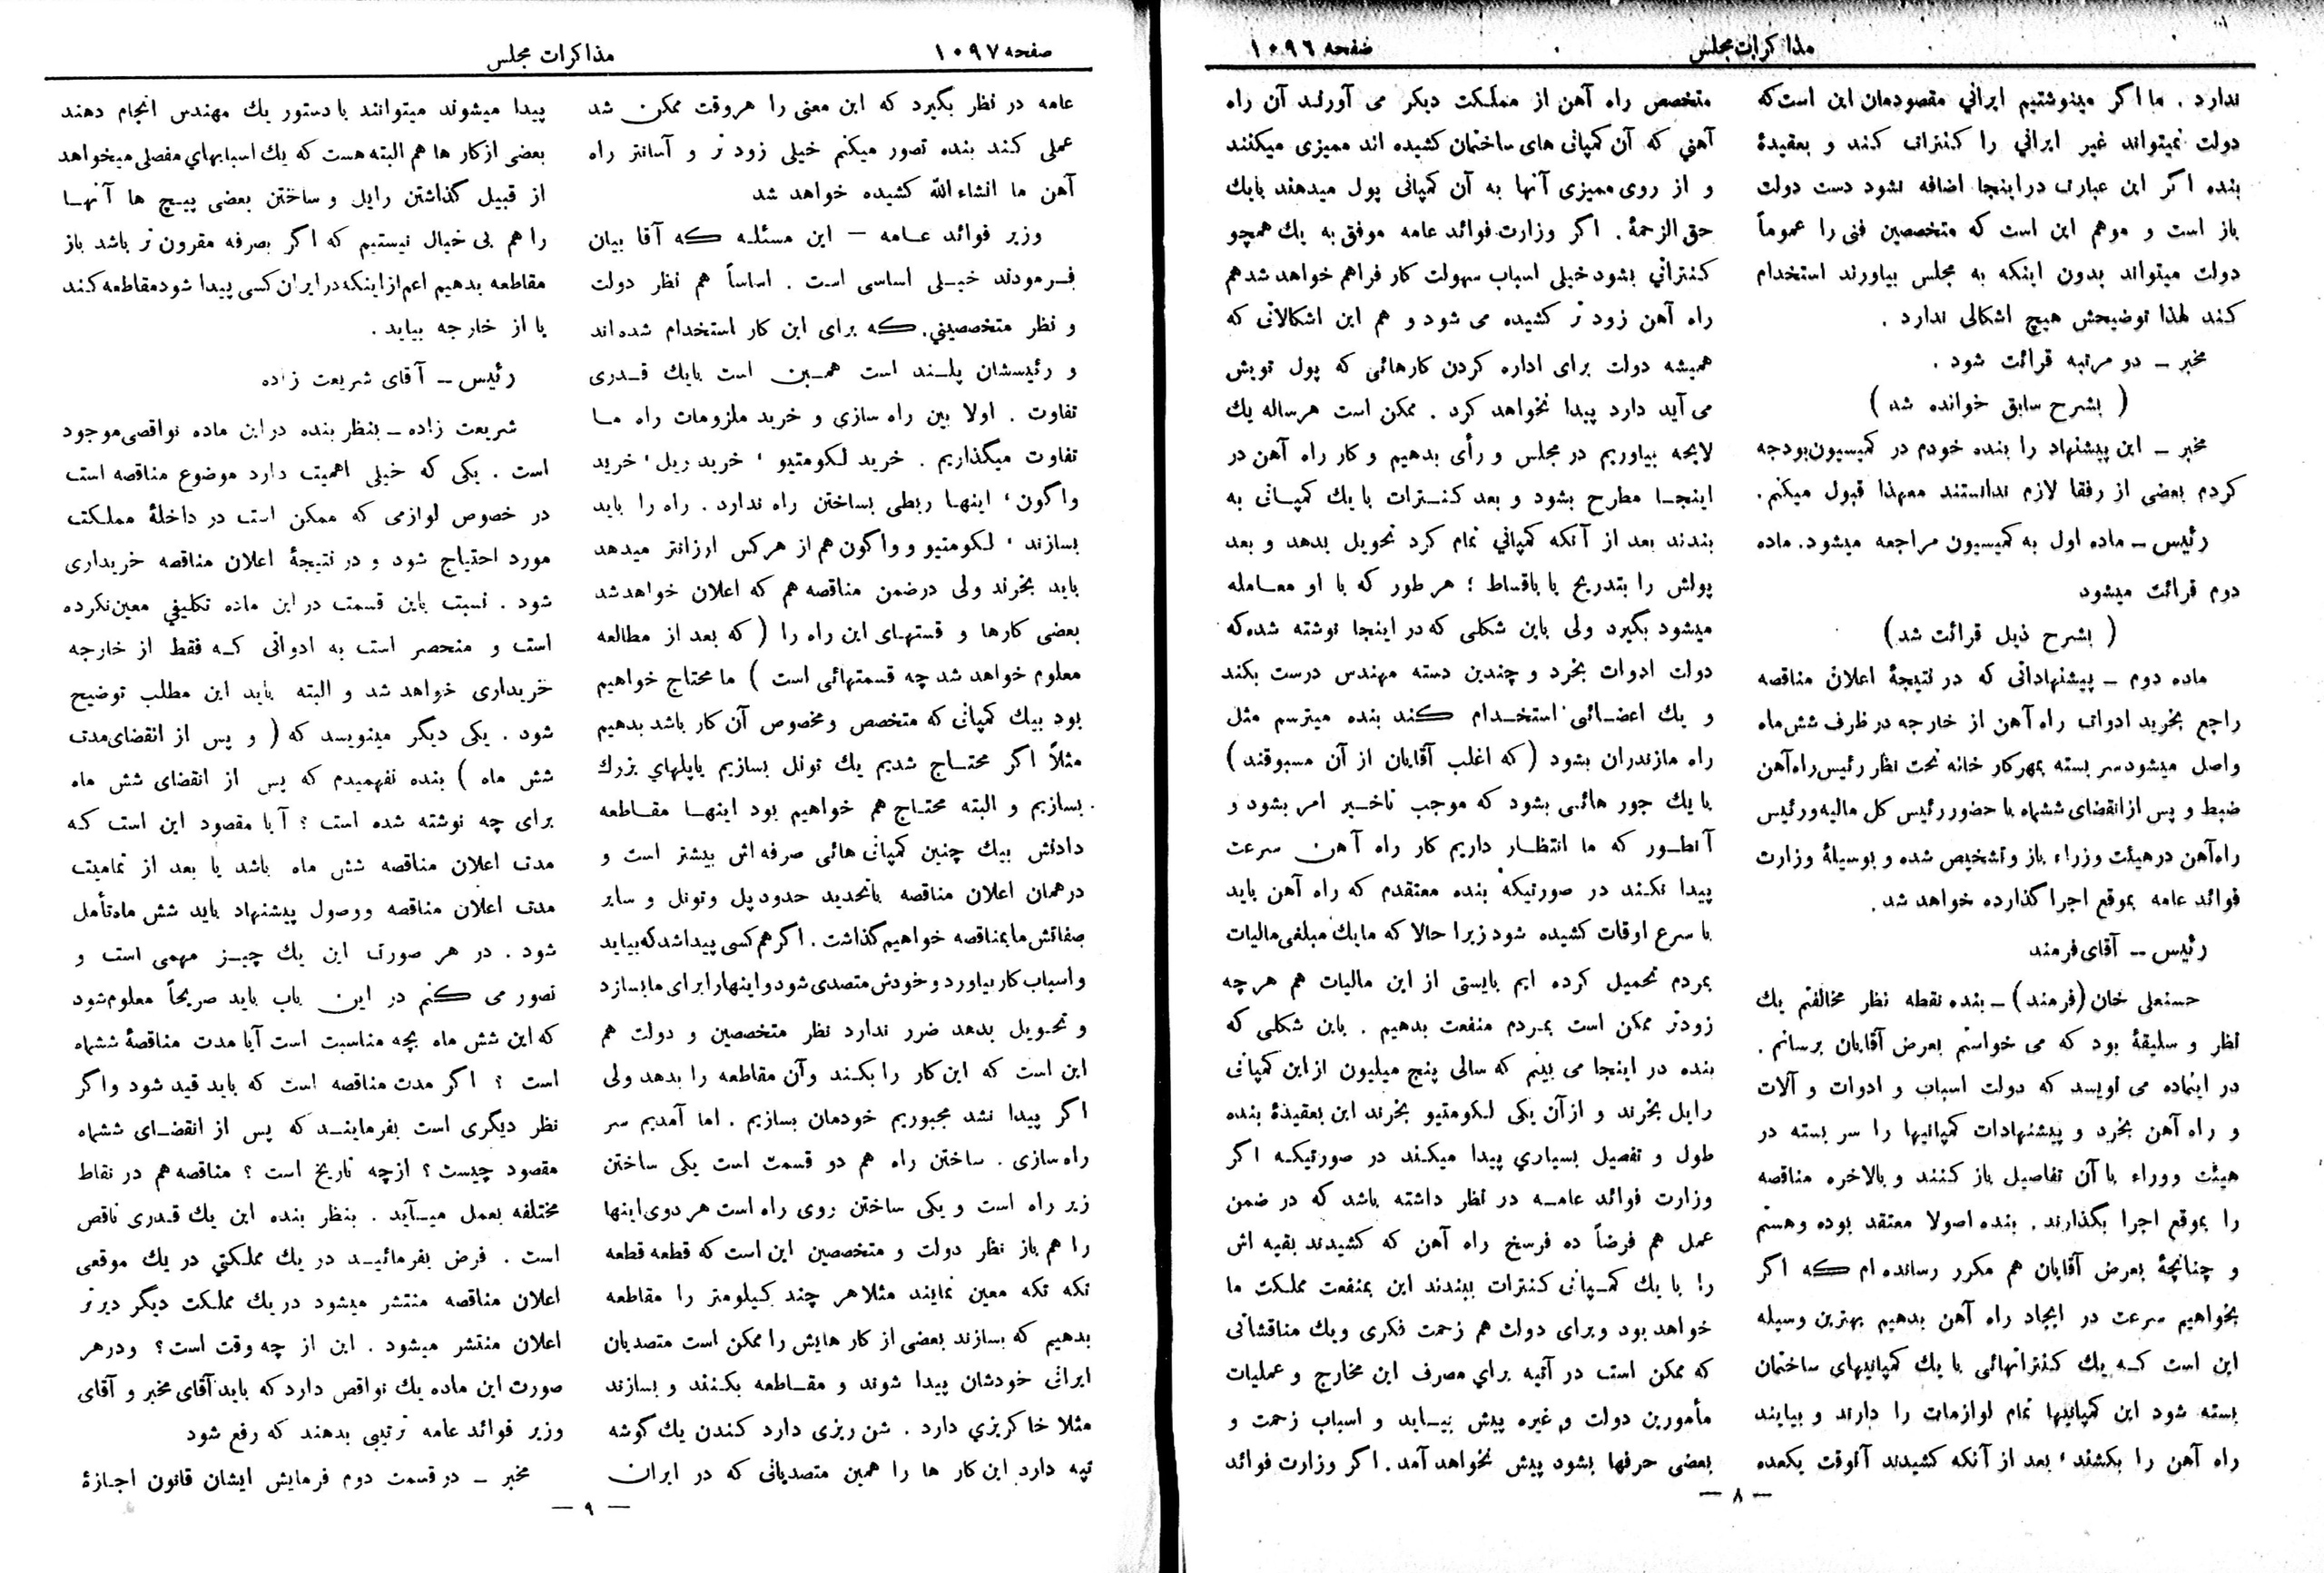 مذاکرات مجلس
صفحه ۱۰۹۶
ندارد . ما اگر مینوشتیم ایرانی مقصودمان این است که
دولت نمیتواند غیر ایرانی را کنترات کند و بعقیدهٔ
بنده اگر این عبارت در اینجا اضافه نشود دست دولت
باز است و موهم این است که متخصصین فنی را عموماً
دولت میتواند بدون اینکه به مجلس بیاورند استخدام
کند لهذا توضیحش هیچ اشکالی ندارد .
مخبر ـ دو مرتبه قرائت شود .
( بشرح سابق خوانده شد )
مخبر ـ این پیشنهاد را بنده خودم در کمیسیون بودجه
کردم بعضی از رفقا لازم ندانستند معهذا قبول میکنم .
رئیس ـ ماده اول به کمیسیون مراجعه میشود . ماده
دوم قرائت میشود
( بشرح ذیل قرائت شد )
ماده دوم ـ پیشنهاداتی که در نتیجهٔ اعلان مناقصه
راجع بخرید ادوات راه آهن از خارجه در ظرف شش ماه
واصل میشود سر بسته بمهر کار خانه تحت نظر رئیس راه آهن
ضبط و پس از انقضای ششماه با حضور رئیس کل مالیه و رئیس
راه آهن در هیئت وزراء باز و تشخیص شده و بوسیلهٔ وزارت
فوائد عامه بموقع اجرا گذارده خواهد شد .
رئیس ـ آقای فرمند
حسنعلی خان (فرمند) ـ بنده نقطه نظر مخالفتم یک
نظر و سلیقهٔ بود که می خواستم بعرض آقایان برسانم .
در اینماده می نویسد که دولت اسباب و ادوات و آلات
و راه آهن بخرد و پیشنهادات کمپانیها را سر بسته در
هیئت ووراء با آن تفاصیل باز کنند و بالاخره مناقصه
را بموقع اجرا بگذارند . بنده اصولا معتقد بوده و هستم
و چنانچهٔ بعرض آقایان هم مکرر رسانده ام که اگر
بخواهیم سرعت در ایجاد راه آهن بدهیم بهترین وسیله
این است کـه یک کنتراتهائی با یک کمپانیهای ساختمان
بسته شود این کمپانیها تمام لوازمات را دارند و بیایند
راه آهن را بکشند ، بعد از آنکه کشیدند آنوقت یکعده
متخصص راه آهن از مملکت دیگر می آورند آن راه
آهنی که آن کمپانی های ساختمان کشیده اند ممیزی میکنند
و از روی ممیزی آنها به آن کمپانی پول میدهند بایک
حق الزحمهٔ . اگر وزارت فوائد عامه موفق به یک همچو
کنتراتی بشود خیلی اسباب سهولت کار فراهم خواهد شد هم
راه آهن زود تر کشیده می شود و هم این اشکالاتی که
همیشه دولت برای اداره کردن کارهائی که پول تویش
می آید دارد پیدا نخواهد کرد . ممکن است هرساله یک
لایحه بیاوریم در مجلس و رأی بدهیم و کار راه آهن در
اینجـا مطرح بشود و بعد کنـترات با یک کمپـانی به
بندند بعد از آنکه کمپانی تمام کرد تحویل بدهد و بعد
پولش را بتدریج یا باقساط ؛ هر طور که با او معـامله
میشود بگیرد ولی باین شکلی که در اینجا نوشته شده که
دولت ادوات بخرد و چندین دسته مهندس درست بکند
و یک اعضـائی استخـدام کند بنده میترسم مثل
راه مازندران بشود (که اغلب آقایان از آن مسبوقند )
یا یک جور هائی بشود که موجب تاخـیر امر بشود و
آنطـور که ما انتظـار داریم کار راه آهن سرعت
پیدا نکند در صورتیکه بنده معتقدم که راه آهن باید
با سرع اوقات کشیده شود زیرا حالا که ما یک مبلغی مالیات
بمردم تحمیل کرده ایم بایستی از این مالیات هم هر چه
زودتر ممکن است بمردم منفعت بدهیم . باین شکلی که
بنده در اینجا می بینم که سالی پنج میلیون از این کمپانی
رایل بخرند و از آن یکی لکومتیو بخرند این بعقیدهٔ بنده
طول و تفصیل بسیاری پیدا میکـند در صورتیکـه اگر
وزارت فوائد عامـه در نظر داشته باشد که در ضمن
عمل هم فرضاً ده فرسخ راه آهن که کشیدند بقیه اش
را با یک کمـپانی کنترات ببندند این بمنفعت مملکت ما
خواهد بود و برای دولت هم زحمت فکری و یک مناقشاتی
که ممکن است در آتیه برای مصرف این مخارج و عملیات
مأمورین دولت و غیره پیش نیـاید و اسباب زحمت و
بعضی حرفها بشود پیش نخواهد آمد . اگر وزارت فوائد
— ۸ —
صفحه ۱۰۹۷
مذاکرات مجلس
عامه در نظر بگیرد که این معنی را هروقت ممکن شد
عملی کند بنده تصور میکنم خیلی زود تر و آسانتر راه
آهن ما انشاء الله کشیده خواهد شد
وزیر فوائد عـامه — این مسئلـه که آقا بیان
فـرمودند خیـلی اساسی است . اساساً هم نظر دولت
و نظر متخصصینی که برای این کار استخدام شده اند
و رئیسشان پلـند است همـین است بایک قـدری
تفاوت . اولا بین راه سازی و خرید ملزومات راه مـا
تفاوت میگذاریم . خرید لکومتیو ، خرید ریل ، خرید
واگون ، اینهـا ربطی بساختن راه ندارد . راه را باید
بسازند ، لکومتیو و واگون هم از هرکس ارزانتر میدهد
باید بخرند ولی درضمن مناقصه هم که اعلان خواهد شد
بعضی کارها و قستهـای این راه را ( که بعد از مطالعه
معلوم خواهد شد چه قسمتهائی است ) ما محتاج خواهیم
بود بیک کمپانی که متخصص و مخصوص آن کار باشد بدهیم
مثلاً اگر محتـاج شدیم یک تونل بسازیم یاپلهای بزرگ
بسازیم و البته محتـاج هم خواهیم بود اینهـا مقـاطعه
دادنش بیک چنین کمپانی هائی صرفه اش بیشتر است و
درهمان اعلان مناقصه باتحدید حدود پل و تونل و سایر
صفاتش ما بمناقصه خواهیم گذاشت . اگر هم کسی پیدا شد که بیاید
و اسباب کار بیاورد و خودش متصدی شود و اینهارا برای ما بسازد
و تحویل بدهد ضرر ندارد نظر متخصصین و دولت هم
این است که این کار را بکـند وآن مقاطعه را بدهد ولی
اگر پیدا نشد مجبوریم خودمان بسازیم . اما آمدیم سر
راه سازی . ساختن راه هم دو قسمت است یکی ساختن
زیر راه است و یکی ساختن روی راه است هر دوی اینها
را هم باز نظر دولت و متخصصین این است که قطعه قطعه
تکه تکه معین نمایند مثلا هر چند کیلومتر را مقاطعه
بدهیم که بسازند بعضی از کار هایش را ممکن است متصدیان
ایرانی خودشان پیدا شوند و مقـاطعه بکـنند و بسازند
مثلا خاکریزی دارد . شن ریزی دارد کندن یک گوشه
تپه دارد این کار ها را همین متصدیانی که در ایران
پیدا میشوند میتوانند با دستور یک مهندس انجام دهند
بعضی ازکار ها هم البته هست که یک اسبابهای مفصلی میخواهد
از قبیل گذاشتن رایل و ساختن بعضی پیـچ ها آنهـا
را هم بی خیال نیستیم که اگر بصرفه مقرون تر باشد باز
مقاطعه بدهیم اعم از اینکه در ایران کسی پیدا شود مقاطعه کند
یا از خارجه بیاید .
رئیس ـ آقای شریعت زاده
شریعت زاده ـ بنظر بنده در این ماده نواقصی موجود
است . یکی که خیلی اهمیت دارد موضوع مناقصه است
در خصوص لوازمی که ممکن است در داخلهٔ مملکت
مورد احتیاج شود و در نتیجهٔ اعلان مناقصه خریداری
شود . نسبت باین قسمت در این ماده تکلیفی معین نکرده
است و منحصر است به ادواتی کـه فقط از خارجه
خریداری خواهد شد و البته باید این مطلب توضیح
شود . یکی دیگر مینویسد که ( و پس از انقضای مدت
شش ماه ) بنده نفهمیدم که پس از انقضای شش ماه
برای چه نوشته شده است ؟ آیا مقصود این است کـه
مدت اعلان مناقصه شش ماه باشد یا بعد از تمامیت
مدت اعلان مناقصه ووصول پیشنهاد باید شش ماه تأمل
شود . در هر صورت این یک چیـز مهمی است و
تصور می کنم در این باب باید صریحاً معلوم شود
که این شش ماه بچه مناسبت است آیا مدت مناقصهٔ ششماه
است ؟ اگر مدت مناقصه است که باید قید شود واگر
نظر دیگری است بفرماینـد که پس از انقضـای ششماه
مقصود چیست ؟ ازچه تاریخ است ؟ مناقصه هم در نقاط
مختلفه بعمل میـآید . بنظر بنده این یک قـدری ناقص
است . فرض بفرمائیـد در یک مملکتی در یک موقعی
اعلان مناقصه منتشر میشود در یک مملکت دیگر دیرتر
اعلان منتشر میشود . این از چه وقت است ؟ و درهر
صورت این ماده یک نواقص دارد که باید آقای مخبر و آقای
وزیر فوائد عامه ترتیبی بدهند که رفع شود
مخبر ـ در قسمت دوم فرمایش ایشان قانون اجـازهٔ
— ۹ —